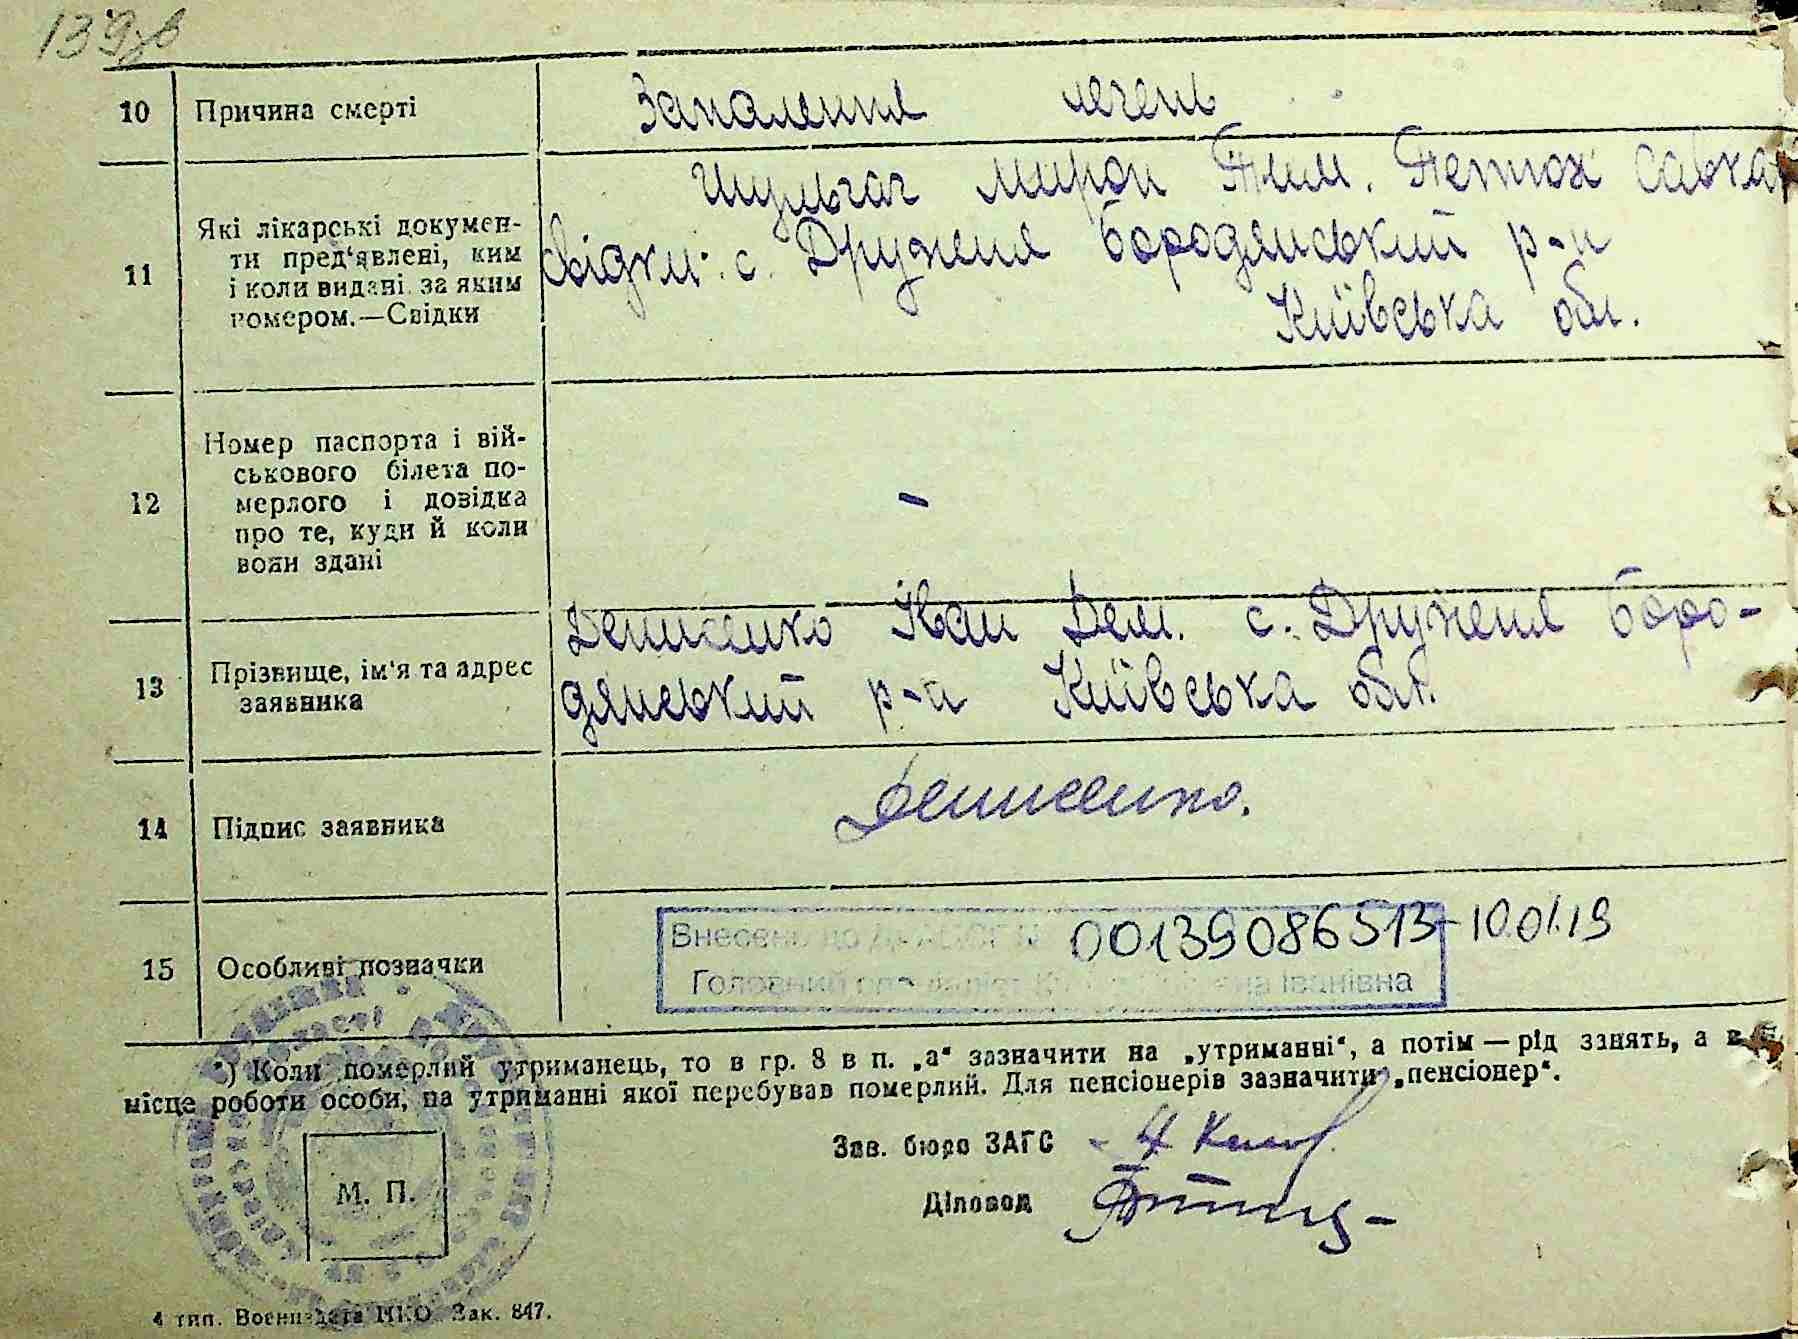 139зв
10 Причина смерті Запалення легень
11 Які лікарські докумен-
ти пред'явлені, ким
і коли видані, за яким
номером.—Свідки
Шульгач Мирон Тим. Петюх Савка
Свідки: с. Дружня Бородянський р-н
Київська обл.
12 Номер паспорта і вій-
ськового білета по-
мерлого і довідка
про те, куди й коли
вони здані
-
13 Прізвище, ім'я та адрес
заявника
Денисенко Іван Дем. с. Дружня Боро-
дянський р-н Київська обл.
14 Підпис заявника Денисенко.
15 Особливі позначки
Внесено до 00139086513-10.01.19
Головний Іванівна
*) Коли померлий утриманець, то в гр. 8 в п. „а“ зазначити на „утриманні“, а потім — рід занять, а в
місце роботи особи, на утриманні якої перебував померлий. Для пенсіонерів зазначити „пенсіонер“.
Зав. бюро ЗАГС
М. П.
Діловод
4 тип. Воениздата НКО Зак. 847.